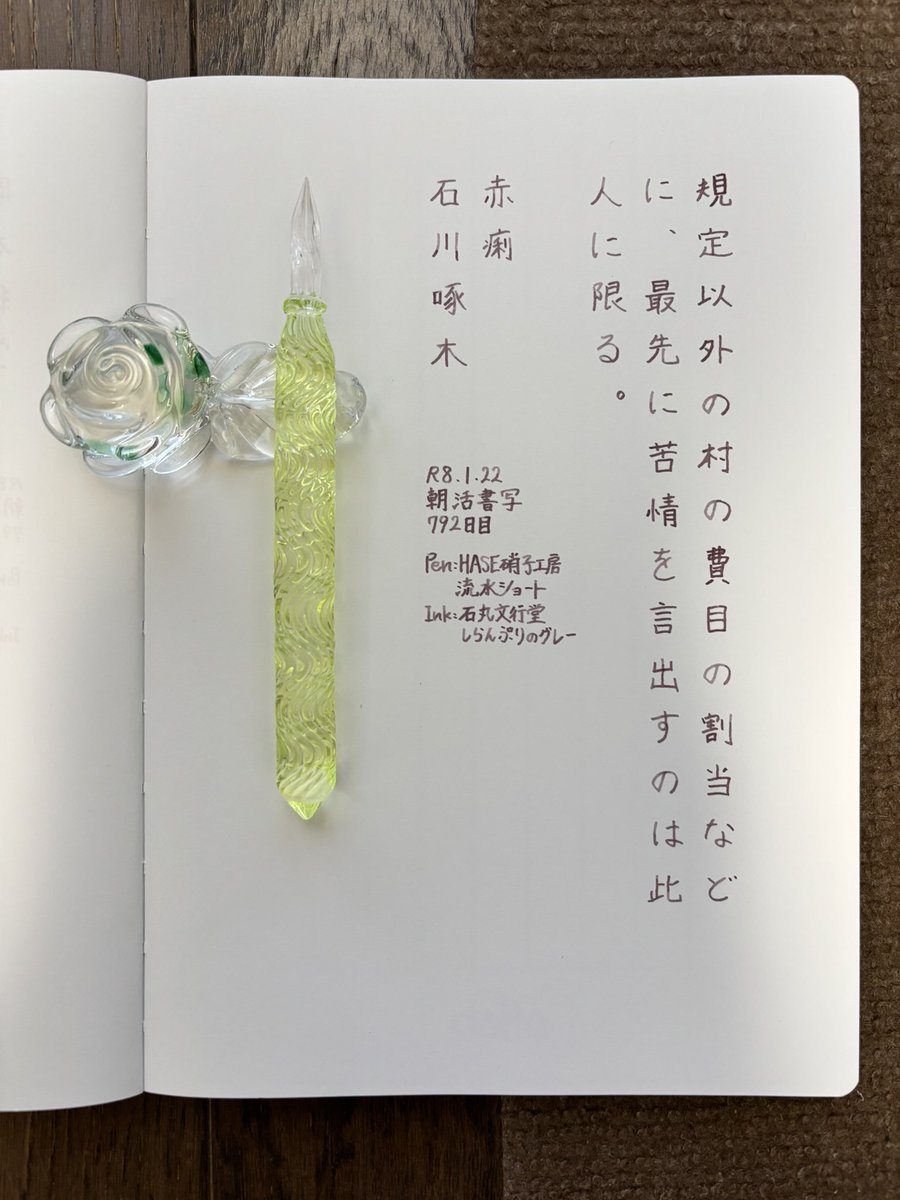 規定以外の村の費目の割当など
に、最先に苦情を言出すのは此
人に限る。
赤痢
石川啄木
R8.1.22
朝活書写
792日目
Pen:HASE硝子工房
流水ショート
Ink:石丸文行堂
しらんぷりのグレー